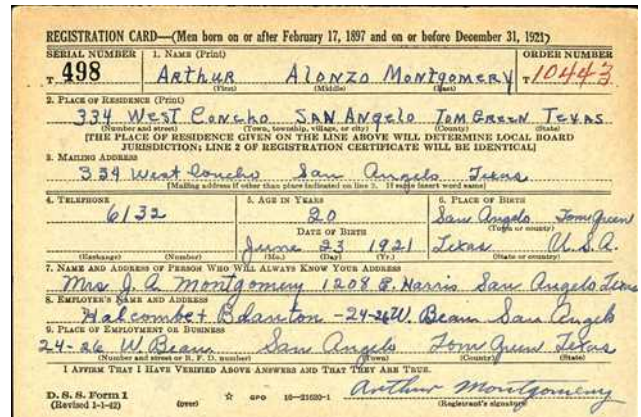 REGISTRATION CARD—(Men born on or after February 17, 1897 and on or before December 31, 1921)
SERIAL NUMBER 1. NAME (Print) ORDER NUMBER
T 498 ARTHUR ALONZO MONTGOMERY T 10443
(First) (Middle) (Last)
2. PLACE OF RESIDENCE (Print)
334 WEST CONCHO SAN ANGELO TOM GREEN TEXAS
(Number and street) (Town, township, village, or city) (County) (State)
[THE PLACE OF RESIDENCE GIVEN ON THE LINE ABOVE WILL DETERMINE LOCAL BOARD
JURISDICTION; LINE 2 OF REGISTRATION CERTIFICATE WILL BE IDENTICAL]
3. MAILING ADDRESS
334 West Concho San Angelo Texas
[Mailing address if other than place indicated on line 2. If same insert word same]
4. TELEPHONE 5. AGE IN YEARS 6. PLACE OF BIRTH
6132 20 San Angelo Tom Green
DATE OF BIRTH (Town or county)
June 23 1921 Texas U.S.A.
(Exchange) (Number) (Mo.) (Day) (Yr.) (State or country)
7. NAME AND ADDRESS OF PERSON WHO WILL ALWAYS KNOW YOUR ADDRESS
Mrs J. A. Montgomery 1208 E. Harris San Angelo Texas
8. EMPLOYER'S NAME AND ADDRESS
Halcomb + Blanton - 24-26 W. Beau San Angelo
9. PLACE OF EMPLOYMENT OR BUSINESS
24-26 W Beau San Angelo Tom Green Texas
(Number and street or R. F. D. number) (Town) (County) (State)
I AFFIRM THAT I HAVE VERIFIED ABOVE ANSWERS AND THAT THEY ARE TRUE.
Arthur Montgomery
D. S. S. Form 1
(Revised 1-1-42) (over) ☆ GPO 16—21630-1 (Registrant's signature)